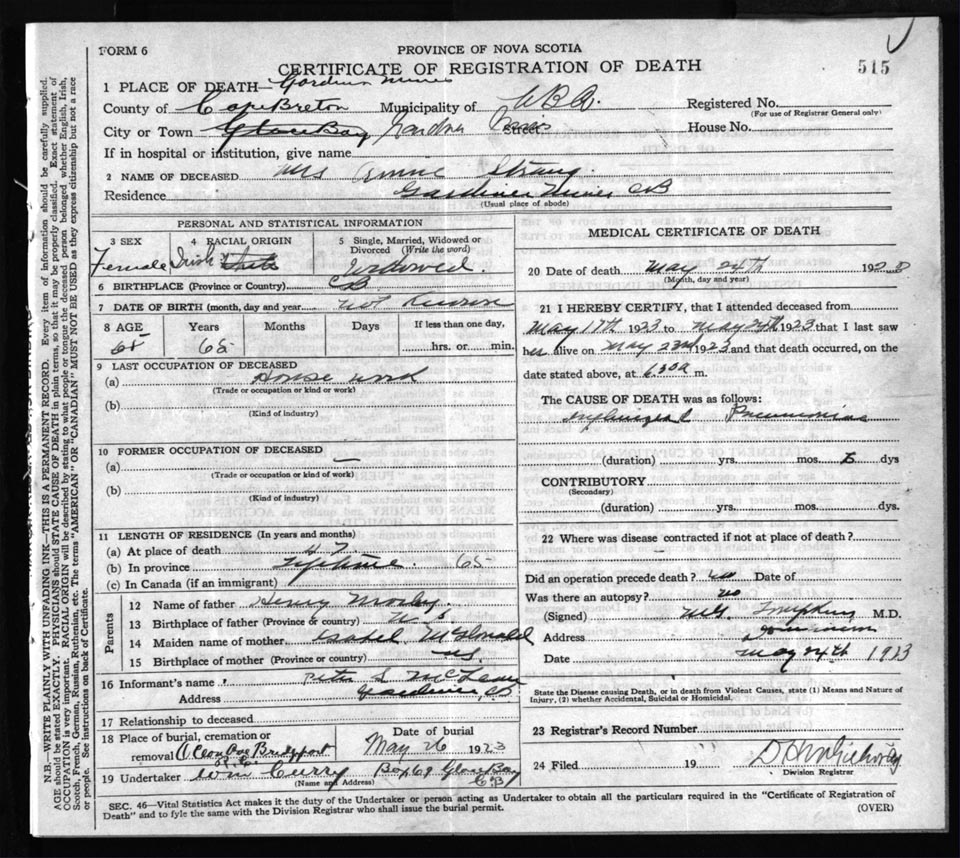 FORM 6
PROVINCE OF NOVA SCOTIA
515
CERTIFICATE OF REGISTRATION OF DEATH
1 PLACE OF DEATH— Gardiner Mines
County of Cape Breton Municipality of Registered No.
(For use of Registrar General only)
City or Town Glace Bay Gardner Mines Street House No.
If in hospital or institution, give name
2 NAME OF DECEASED Mrs Annie Strang
Residence Gardiner Mines CB
(Usual place of abode)
PERSONAL AND STATISTICAL INFORMATION
3 SEX
Female
4 RACIAL ORIGIN
Irish White
5 Single, Married, Widowed or
Divorced (Write the word)
Widowed
6 BIRTHPLACE (Province or Country) CB
7 DATE OF BIRTH (month, day and year) not known
8 AGE Years Months Days If less than one day,
65 65 hrs. or min.
9 LAST OCCUPATION OF DECEASED
(a) House work
(Trade or occupation or kind or work)
(b)
(Kind of industry)
10 FORMER OCCUPATION OF DECEASED
(a) —
(Trade or occupation or kind of work)
(b)
(Kind of industry)
11 LENGTH OF RESIDENCE (In years and months)
(a) At place of death 47
(b) In province Lifetime 65
(c) In Canada (if an immigrant)
Parents
12 Name of father Henry Morley
13 Birthplace of father (Province or country) N S
14 Maiden name of mother Isabel McDonald
15 Birthplace of mother (Province or country) NS
16 Informant's name Peter
Address Gardiner CB
17 Relationship to deceased
18 Place of burial, cremation or
removal Ocean Ave Bridgeport
R.C.
Date of burial
May 26 1923
19 Undertaker Wm Curry Box 69 Glace Bay
(Name and Address) C.B
MEDICAL CERTIFICATE OF DEATH
20 Date of death May 24th 192
(Month, day and year)
21 I HEREBY CERTIFY, that I attended deceased from
May 17th 1923 to May 24th 1923 that I last saw
her alive on May 23rd 1923 and that death occurred, on the
date stated above, at 6.30a m.
The CAUSE OF DEATH was as follows:
Influenzal Pneumonia
(duration) yrs. mos. 7 dys
CONTRIBUTORY
(Secondary)
(duration) yrs. mos. dys.
22 Where was disease contracted if not at place of death?
Did an operation precede death? no Date of
Was there an autopsy? no
(Signed) MG Tompkins M.D.
Address Dominion
Date May 24th 1923
State the Disease causing Death, or in death from Violent Causes, state (1) Means and Nature of
Injury, (2) whether Accidental, Suicidal or Homicidal.
23 Registrar's Record Number
24 Filed 19
Division Registrar
SEC. 46—Vital Statistics Act makes it the duty of the Undertaker or person acting as Undertaker to obtain all the particulars required in the "Certificate of Registration of
Death" and to fyle the same with the Division Registrar who shall issue the burial permit. (OVER)
N.B.—WRITE PLAINLY WITH UNFADING INK—THIS IS A PERMANENT RECORD. Every item of information should be carefully supplied.
AGE should be stated EXACTLY. PHYSICIANS should STATE CAUSE OF DEATH in plain terms, so that it may be properly classified. Exact statement of
OCCUPATION is very important. RACIAL ORIGIN will be described by stating to what people or tongue the deceased person belonged, whether English, Irish,
Scotch, French, German, Russian, Ruthenian, etc. The terms "AMERICAN" OR "CANADIAN" MUST NOT BE USED as they express citizenship but not a race
or people. See instructions on back of Certificate.